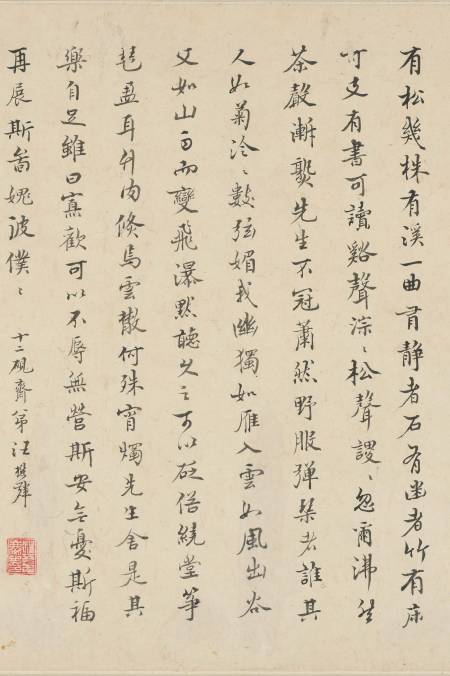 有松幾株有溪一曲肎静者石有幽者竹有床
可支有書可讀谿聲淙﹅松聲謖﹅忽爾沸然
茶聲漸爇先生不冠蕭然野服彈琴者誰其
人如菊泠﹅數弦媚我幽獨如雁入雲如風出谷
又如山而變飛瀑默聽久之可以砭俗繞堂箏
琶盈耳升肉倏焉雲散何殊宵燭先生舍是其
樂自足雖曰寡歡可以不辱無營斯安無憂斯福
再展斯圖媿波僕﹅ 十二硯齋弟汪